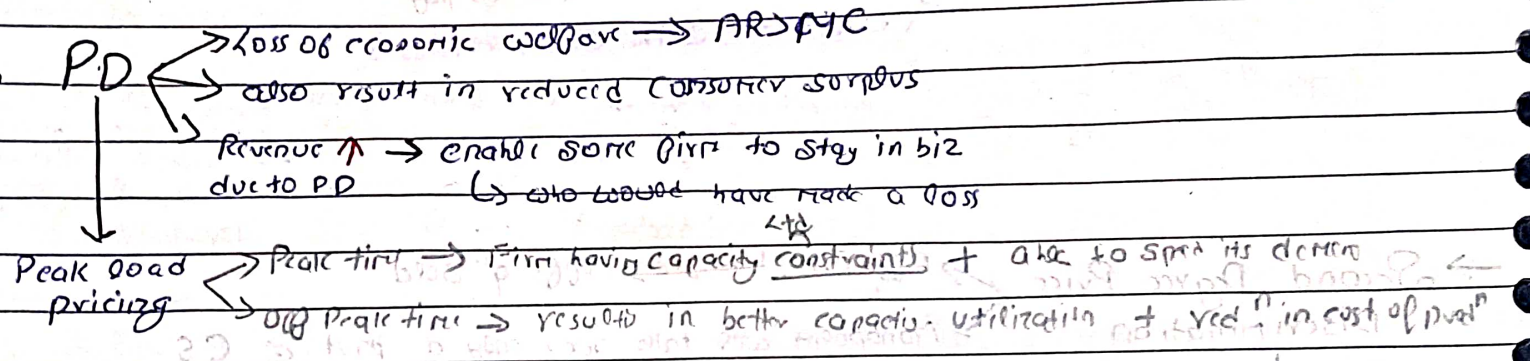 P.D → Loss of economic welfare → AR>MC
→ also result in reduced consumer surplus
→ Revenue ↑ → enable some firm to stay in biz
due to PD ↳ who would have made a loss
Ltd
Peak load → Peak time → Firm having capacity constraints + able to its
pricing → Off Peak time → results in better capacity utilization + redⁿ in cost of prodⁿ